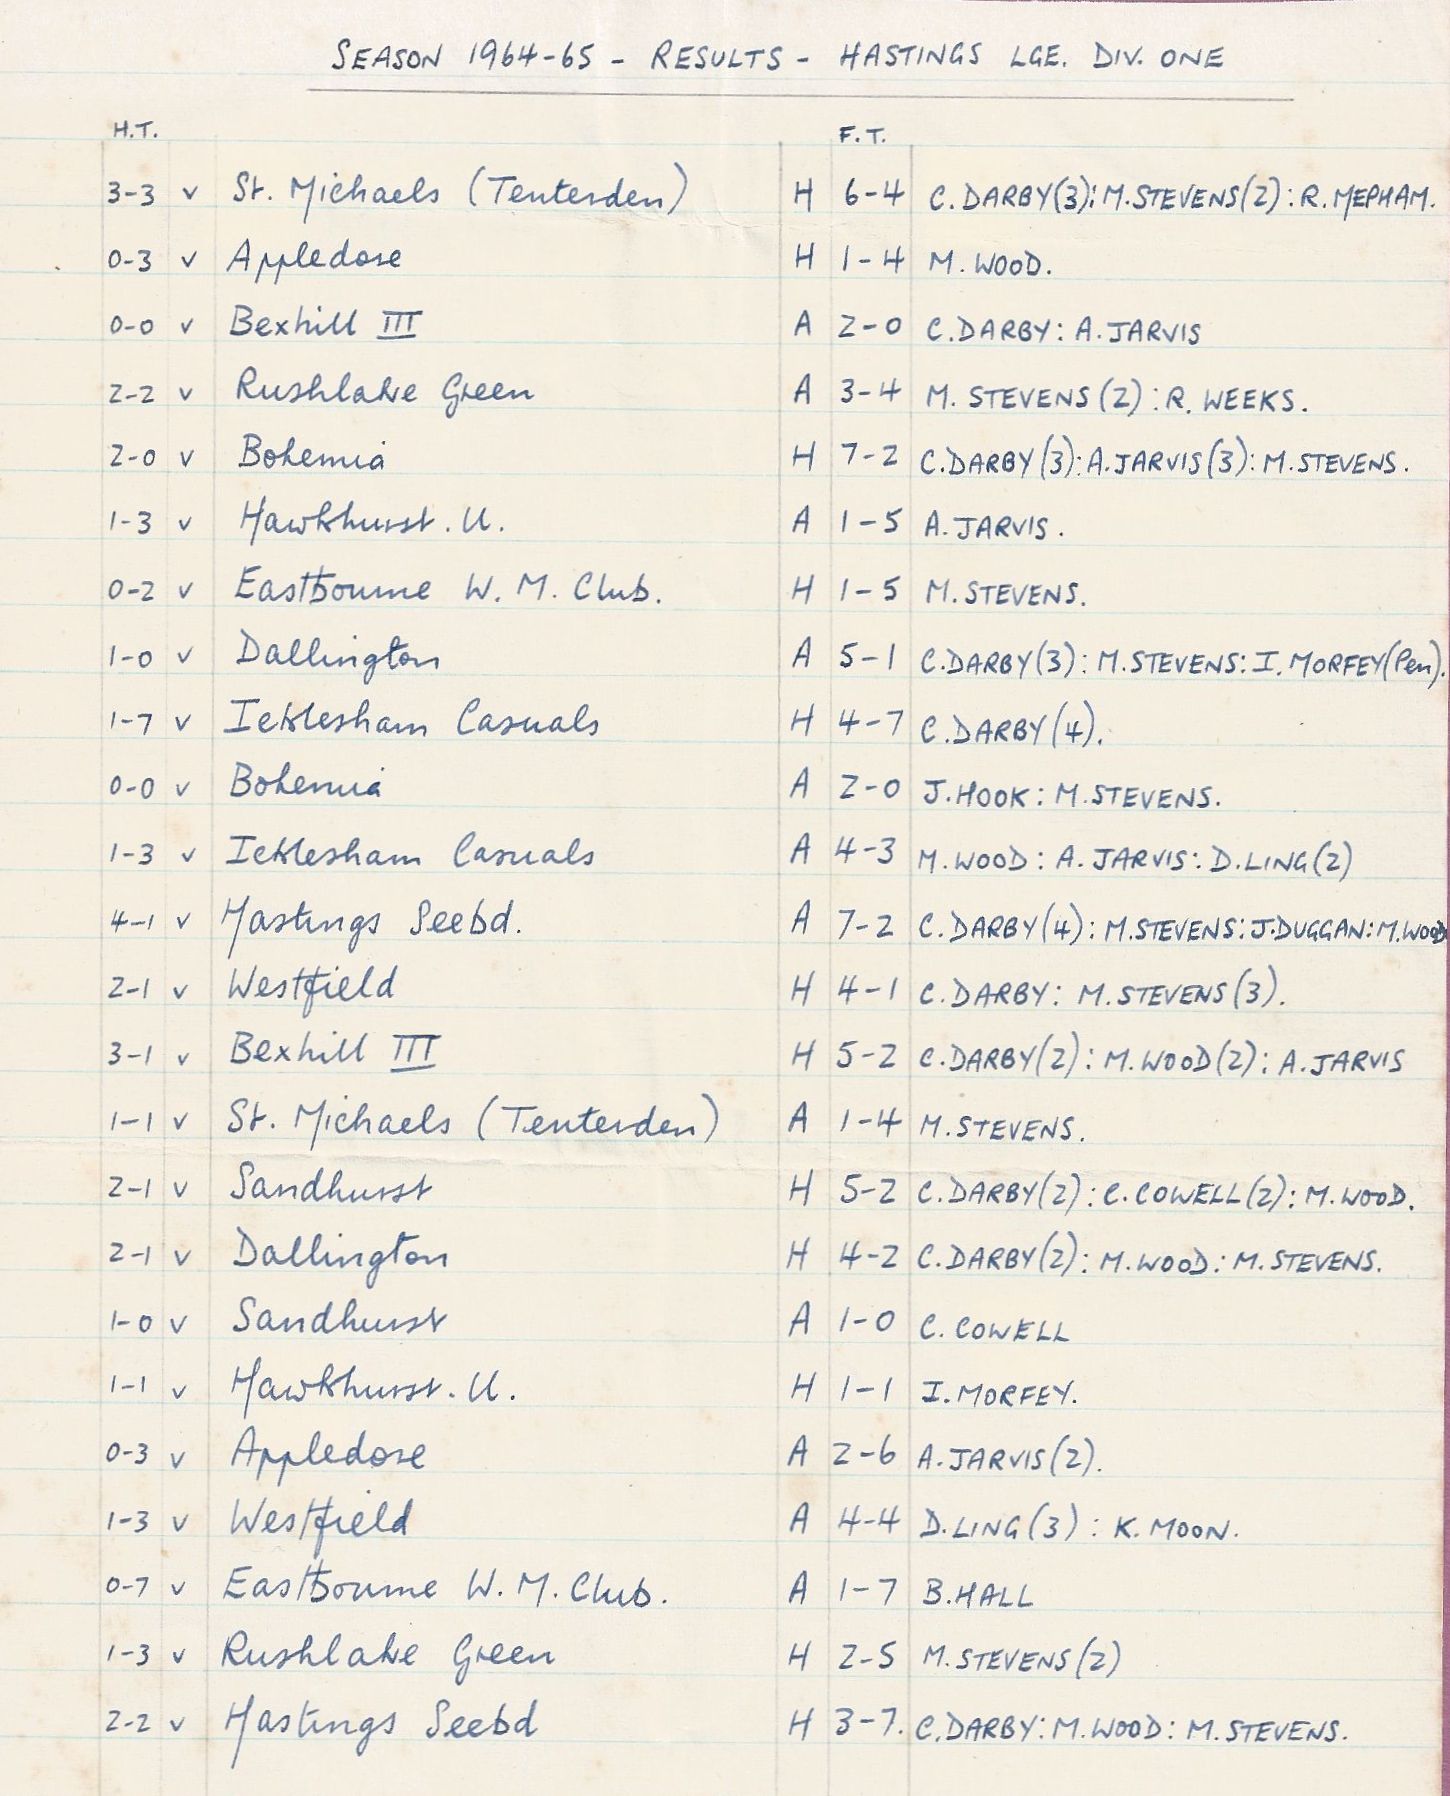 SEASON 1964-65 - RESULTS - HASTINGS LGE. DIV. ONE
H.T. F.T.
3-3 v St. Michaels (Tenterden) H 6-4 C.DARBY(3): M.STEVENS(2): R.MEPHAM.
0-3 v Appledore H 1-4 M.WOOD.
0-0 v Bexhill III A 2-0 C.DARBY: A.JARVIS
2-2 v Rushlake Green A 3-4 M. STEVENS(2): R. WEEKS.
2-0 v Bohemia H 7-2 C.DARBY(3): A.JARVIS(3): M.STEVENS.
1-3 v Hawkhurst. U. A 1-5 A.JARVIS.
0-2 v Eastbourne W. M. Club. H 1-5 M.STEVENS.
1-0 v Dallington A 5-1 C.DARBY(3): M.STEVENS: I. MORFEY(Pen).
1-7 v Icklesham Casuals H 4-7 C.DARBY(4).
0-0 v Bohemia A 2-0 J.HOOK: M.STEVENS.
1-3 v Icklesham Casuals A 4-3 M.WOOD: A. JARVIS: D.LING(2)
4-1 v Hastings Seebd. A 7-2 C.DARBY(4): M.STEVENS: J.DUGGAN: M.WOOD
2-1 v Westfield H 4-1 C.DARBY: M.STEVENS(3).
3-1 v Bexhill III H 5-2 C.DARBY(2): M.WOOD(2): A.JARVIS
1-1 v St. Michaels (Tenterden) A 1-4 M.STEVENS.
2-1 v Sandhurst H 5-2 C.DARBY(2): C.COWELL(2): M.WOOD.
2-1 v Dallington H 4-2 C.DARBY(2): M.WOOD: M.STEVENS.
1-0 v Sandhurst A 1-0 C. COWELL
1-1 v Hawkhurst. U. H 1-1 I.MORFEY.
0-3 v Appledore A 2-6 A.JARVIS(2).
1-3 v Westfield A 4-4 D.LING(3): K. MOON.
0-7 v Eastbourne W. M. Club. A 1-7 B.HALL
1-3 v Rushlake Green H 2-5 M.STEVENS(2)
2-2 v Hastings Seebd H 3-7. C.DARBY: M.WOOD: M.STEVENS.